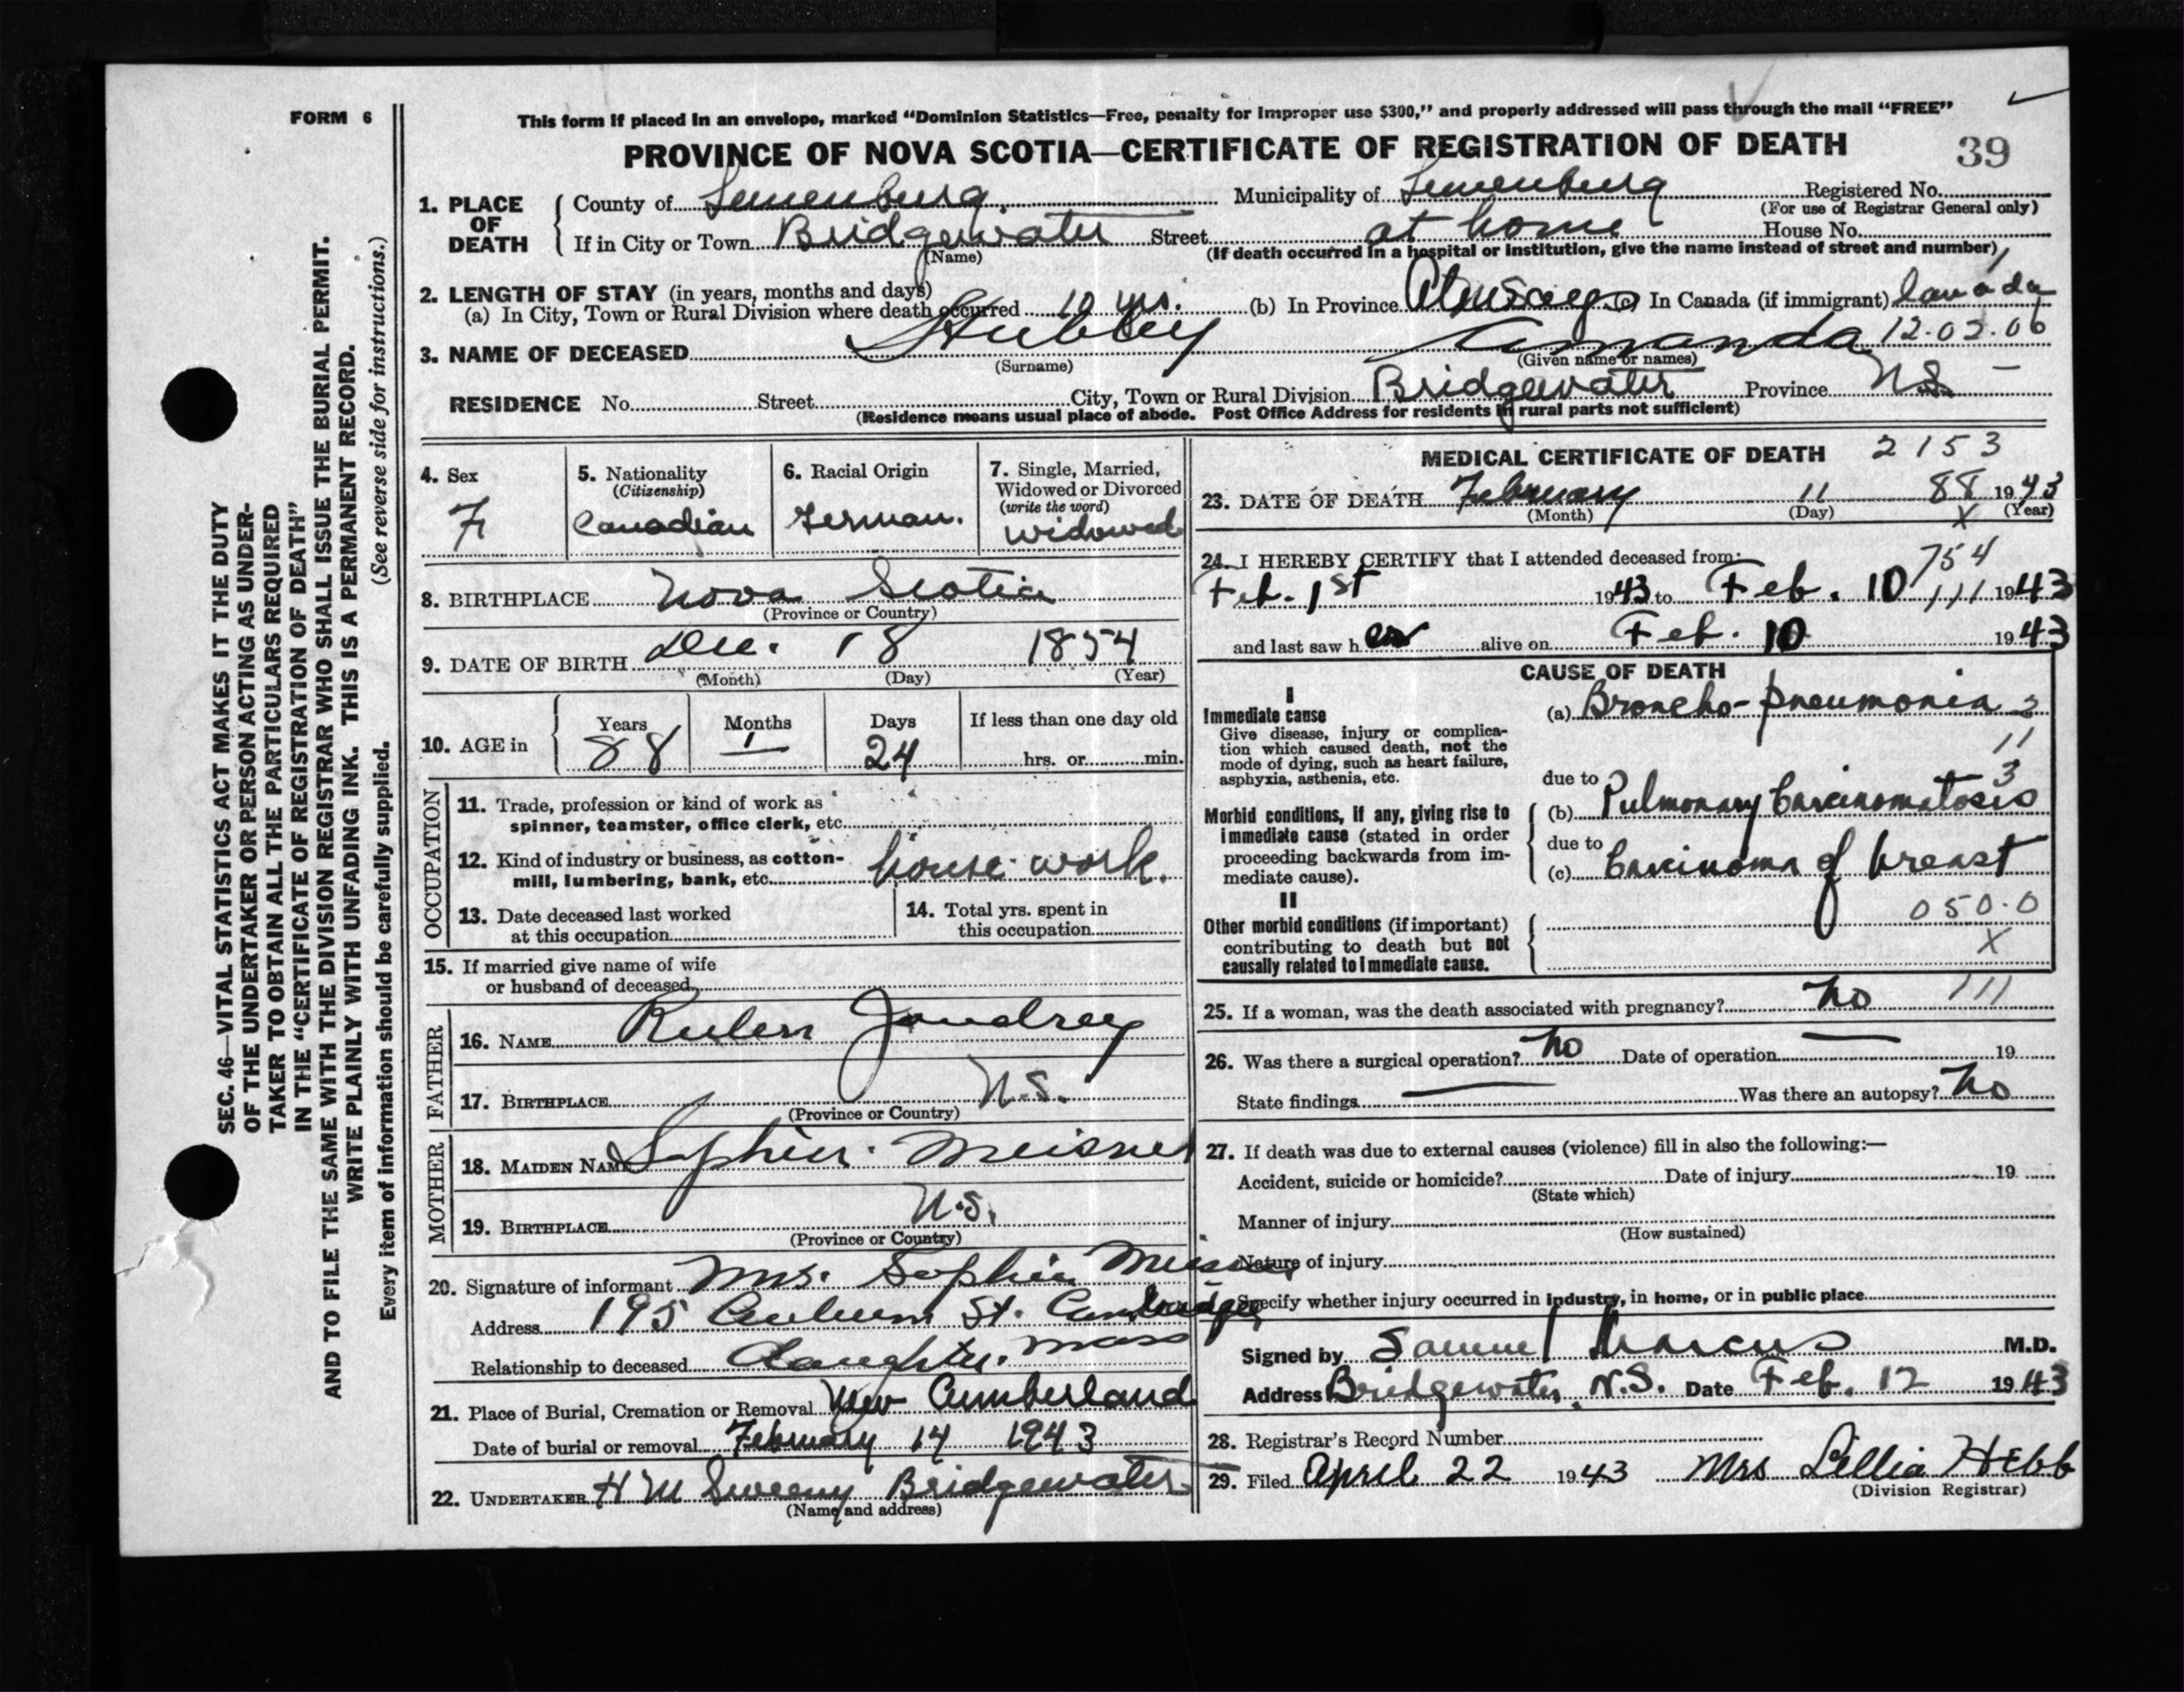 FORM 6
This form if placed in an envelope, marked "Dominion Statistics—Free, penalty for improper use $300," and properly addressed will pass through the mail "FREE"
PROVINCE OF NOVA SCOTIA—CERTIFICATE OF REGISTRATION OF DEATH 39
1. PLACE OF DEATH
County of Lunenburg. Municipality of Lunenburg Registered No.
(For use of Registrar General only)
If in City or Town Bridgewater Street at home House No.
(Name) (If death occurred in a hospital or institution, give the name instead of street and number)
2. LENGTH OF STAY (in years, months and days)
(a) In City, Town or Rural Division where death occurred 10 yrs. (b) In Province Always (c) In Canada (if immigrant) Canada
3. NAME OF DECEASED Hubley Amanda 12.02.06
(Surname) (Given name or names)
RESIDENCE No. Street City, Town or Rural Division Bridgewater Province N.S. –
(Residence means usual place of abode. Post Office Address for residents in rural parts not sufficient)
4. Sex
F
5. Nationality
(Citizenship)
Canadian
6. Racial Origin
German.
7. Single, Married,
Widowed or Divorced
(write the word)
widowed
8. BIRTHPLACE Nova Scotia
(Province or Country)
9. DATE OF BIRTH Dec. 18 1854
(Month) (Day) (Year)
10. AGE in
Years Months Days If less than one day old
88 1 24 hrs. or min.
OCCUPATION
11. Trade, profession or kind of work as
spinner, teamster, office clerk, etc.
12. Kind of industry or business, as cotton-
mill, lumbering, bank, etc. house work.
13. Date deceased last worked
at this occupation
14. Total yrs. spent in
this occupation
15. If married give name of wife
or husband of deceased
FATHER
16. NAME Ruben Joudrey
17. BIRTHPLACE N.S.
(Province or Country)
MOTHER
18. MAIDEN NAME Sophia Meisner
19. BIRTHPLACE N.S.
(Province or Country)
20. Signature of informant Mrs. Sophia Meisner
Address 195 Auburn St. Cambridge
Relationship to deceased daughter. Mass
21. Place of Burial, Cremation or Removal New Cumberland
Date of burial or removal February 14 1943
22. UNDERTAKER H M Sweeny Bridgewater
(Name and address)
MEDICAL CERTIFICATE OF DEATH 2153
23. DATE OF DEATH February 11 88 1943
(Month) (Day) X (Year)
24. I HEREBY CERTIFY that I attended deceased from: 754
Feb. 1st 1943 to Feb. 10 111 1943
and last saw her alive on Feb. 10 1943
CAUSE OF DEATH
I
Immediate cause
Give disease, injury or complica-
tion which caused death, not the
mode of dying, such as heart failure,
asphyxia, asthenia, etc.
(a) Broncho-pneumonia 2
11
due to 3
Morbid conditions, if any, giving rise to
immediate cause (stated in order
proceeding backwards from im-
mediate cause).
(b) Pulmonary Carcinomatosis
due to
(c) Carcinoma of breast
II
Other morbid conditions (if important)
contributing to death but not
causally related to immediate cause.
050.0
X
25. If a woman, was the death associated with pregnancy? No 111
26. Was there a surgical operation? No Date of operation — 19
State findings — Was there an autopsy? No
27. If death was due to external causes (violence) fill in also the following:—
Accident, suicide or homicide? Date of injury 19
(State which)
Manner of injury
(How sustained)
Nature of injury
Specify whether injury occurred in industry, in home, or in public place
Signed by Samuel Marcus M.D.
Address Bridgewater, N.S. Date Feb. 12 1943
28. Registrar's Record Number
29. Filed April 22 1943 Mrs Lillia Hebb
(Division Registrar)
SEC. 46—VITAL STATISTICS ACT MAKES IT THE DUTY
OF THE UNDERTAKER OR PERSON ACTING AS UNDER-
TAKER TO OBTAIN ALL THE PARTICULARS REQUIRED
IN THE "CERTIFICATE OF REGISTRATION OF DEATH"
AND TO FILE THE SAME WITH THE DIVISION REGISTRAR WHO SHALL ISSUE THE BURIAL PERMIT.
WRITE PLAINLY WITH UNFADING INK. THIS IS A PERMANENT RECORD.
Every item of information should be carefully supplied. (See reverse side for instructions.)